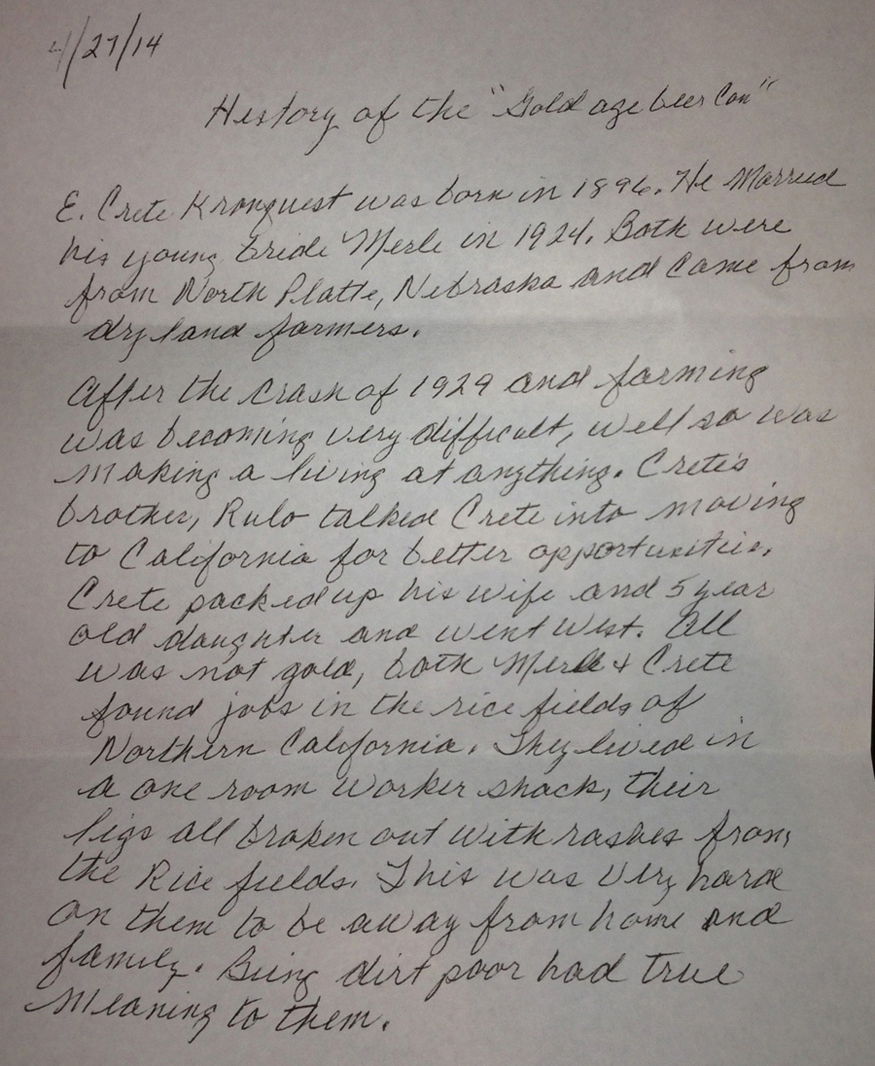 4/27/14
History of the "Gold age beer Can"
E. Crete Kronquest was born in 1896. He Married
his young bride Merle in 1924. Both were
from North Platte, Nebraska and came from
dry land farmers.
After the crash of 1929 and farming
was becoming very difficult, well so was
making a living at anything. Crete's
brother, Rulo talked Crete into moving
to California for better opportunities.
Crete packed up his wife and 5 year
old daughter and went West. All
was not gold, both Merle & Crete
found jobs in the rice fields of
Northern California. They lived in
a one room worker shack, their
legs all broken out with rashes from
the Rice fields. This was very hard
on them to be away from home and
family. Being dirt poor had true
meaning to them.